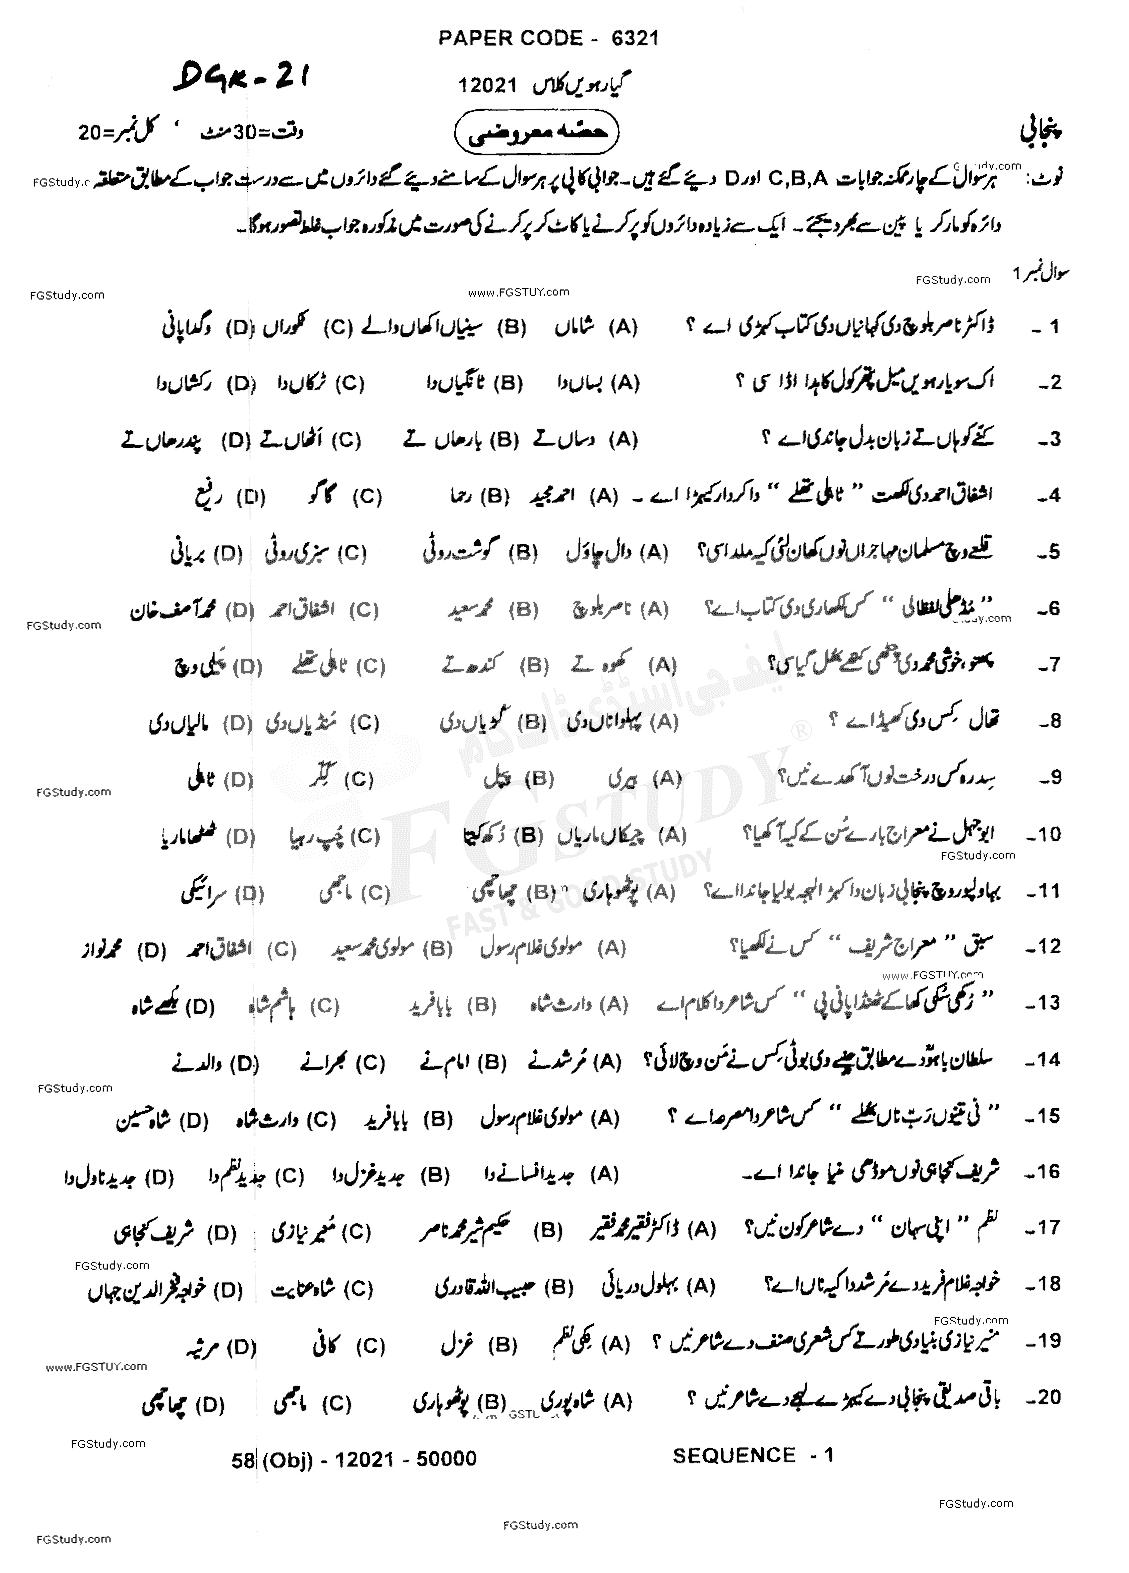 PAPER CODE - 6321
DGK-21
گیارہویں کلاس 12021
پنجابی حصّہ معروضی وقت=30 منٹ ، کل نمبر=20
FGStudy.com
نوٹ: ہر سوال کے چار ممکنہ جوابات C,B,A اور D دیئے گئے ہیں۔ جوابی کاپی پر ہر سوال کے سامنے دیئے گئے دائروں میں سے درست جواب کے مطابق متعلقہ
دائرہ کو مارکر یا پین سے بھر دیجئے۔ ایک سے زیادہ دائروں کو پر کرنے یا کاٹ کر پر کرنے کی صورت میں مذکورہ جواب غلط تصور ہوگا۔
سوال نمبر 1
FGStudy.com www.FGSTUY.com FGStudy.com
1- ڈاکٹر ناصر بلوچ دی کہانیاں دی کتاب کہڑی اے ؟ (A) شاماں (B) سینیاں اکھاں والے (C) کلوراں (D) وگدا پانی
2- اک سو یارھویں میل پتھر کول کاہدا اڈا سی ؟ (A) بساں دا (B) ٹانگیاں دا (C) ٹرکاں دا (D) رکشاں دا
3- کنّے کوہاں تے زبان بدل جاندی اے ؟ (A) دساں تے (B) بارھاں تے (C) اٹھاں تے (D) پندرھاں تے
4- اشفاق احمد دی لکھت " ٹاہلی تھلے " دا کردار کیہڑا اے ۔ (A) احمد مجید (B) رحما (C) کاکو (D) رفیع
5- قلعے وچ مسلمان مہاجراں نوں کھان لئی کیہ ملدا سی؟ (A) دال چاول (B) گوشت روٹی (C) سبزی روٹی (D) بریانی
6- " مُڈھلی لفظالی " کس لکھاری دی کتاب اے؟ (A) ناصر بلوچ (B) محمد سعید (C) اشفاق احمد (D) محمد آصف خان
FGStudy.com
7- پھتو، خوشی محمد دی چٹھی کتھے بھل گیا سی؟ (A) کھوہ تے (B) کندھ تے (C) ٹاہلی تھلے (D) جھلی وچ
8- تھال کس دی کھیڈ اے ؟ (A) پہلواناں دی (B) کڑیاں دی (C) مُنڈیاں دی (D) مالیاں دی
9- سدرہ کس درخت نوں آکھدے نیں؟ (A) بیری (B) پپل (C) ککر (D) ٹاہلی
FGStudy.com
10- ابوجہل نے معراج بارے سُن کے کیہ آکھیا؟ (A) چیکاں ماریاں (B) دُکھ کیتا (C) چُپ رہیا (D) ٹھٹھا ماریا
FGStudy.com
11- بہاولپور وچ پنجابی زبان دا کہڑا لہجہ بولیا جاندا اے؟ (A) پوٹھوہاری (B) چھاچھی (C) ماجھی (D) سرائیکی
12- سبق " معراج شریف " کس نے لکھیا؟ (A) مولوی غلام رسول (B) مولوی محمد سعید (C) اشفاق احمد (D) محمد نواز
www.FGSTUY.com
13- " رُکھی سُکھی کھا کے ٹھنڈا پانی پی " کس شاعر دا کلام اے (A) وارث شاہ (B) بابا فرید (C) ہاشم شاہ (D) بلھے شاہ
14- سلطان باہوؒ دے مطابق چنبے دی بوٹی کس نے مَن وچ لائی؟ (A) مُرشد نے (B) امام نے (C) بھرا نے (D) والد نے
FGStudy.com
15- " نی تینوں رَبّ ناں بھلے " کس شاعر دا مصرعہ اے ؟ (A) مولوی غلام رسول (B) بابا فرید (C) وارث شاہ (D) شاہ حسین
16- شریف کنجاہی نوں موڈھی منیا جاندا اے۔ (A) جدید افسانے دا (B) جدید غزل دا (C) جدید نظم دا (D) جدید ناول دا
17- نظم " اپنی سہان " دے شاعر کون نیں؟ (A) ڈاکٹر فقیر محمد فقیر (B) حکیم شیر محمد ناصر (C) منیر نیازی (D) شریف کنجاہی
FGStudy.com
18- خواجہ غلام فرید دے مُرشد دا کیہ ناں اے؟ (A) بہلول دریائی (B) حبیب اللہ قادری (C) شاہ عنایت (D) خواجہ فخر الدین جہاں
FGStudy.com
19- منیر نیازی بنیادی طور تے کس شعری صنف دے شاعر نیں ؟ (A) نکی نظم (B) غزل (C) کافی (D) مرثیہ
www.FGSTUY.com
20- باقی صدیقی پنجابی دے کیہڑے لہجے دے شاعر نیں ؟ (A) شاہ پوری (B) پوٹھوہاری (C) ماجھی (D) چھاچھی
FGStudy.com
58 (Obj) - 12021 - 50000 SEQUENCE - 1
FGStudy.com
FGStudy.com
FGStudy.com
ایف جی اسٹڈی ڈاٹ کام
FGSTUDY®
FAST & GOOD STUDY